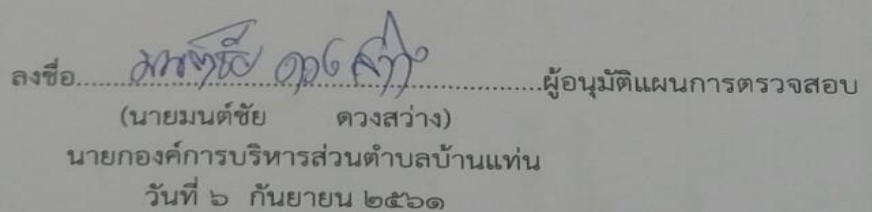 ลงชื่อ.....มนต์ชัย ดวงสว่าง.....ผู้อนุมัติแผนการตรวจสอบ
(นายมนต์ชัย ดวงสว่าง)
นายกองค์การบริหารส่วนตำบลบ้านแท่น
วันที่ ๖ กันยายน ๒๕๖๑